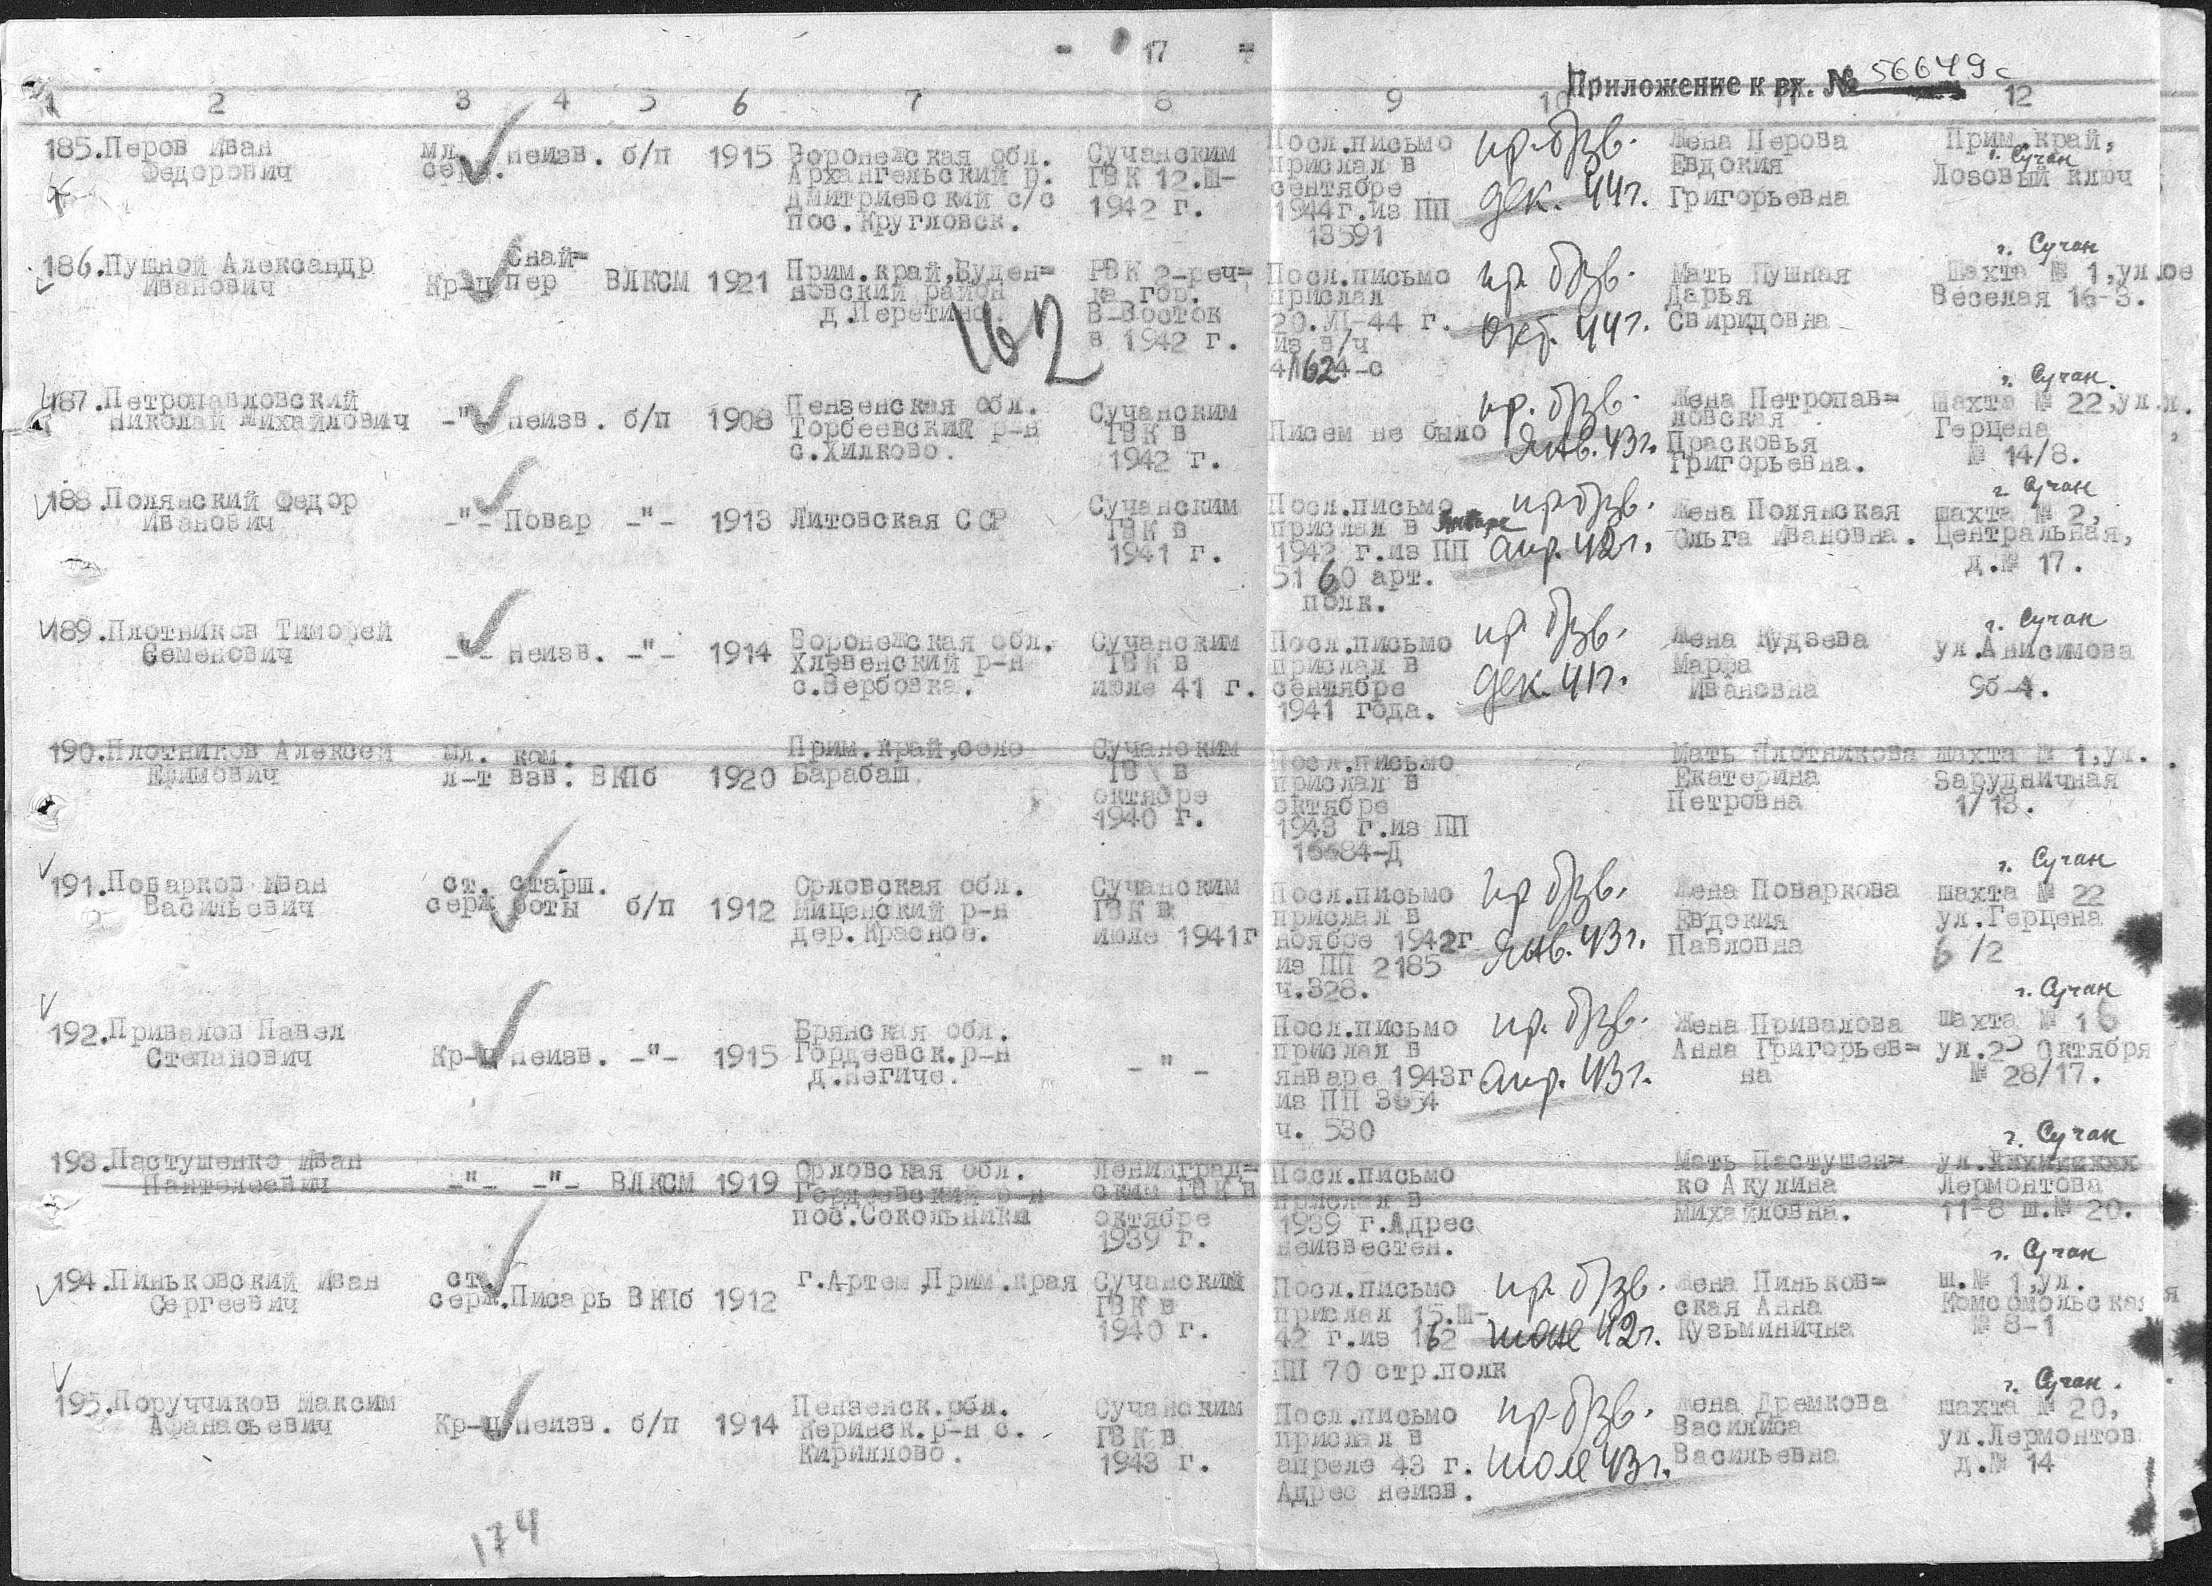 - 17 =
Приложение к вх. № 56649с
1 2 3 4 5 6 7 8 9 10 11 12
185. Перов Иван
Федорович
мл.
серж.
неизв. б/п 1915
Воронежская обл.
Архангельский р.
Дмитриевский с/с
пос. Кругловск.
Сучанским
ГВК 12.Ш-
1942 г.
Посл.письмо
прислал в
сентябре
1944г.из ПП
13591
пр. б/зв.
дек. 44г.
Жена Перова
Евдокия
Григорьевна
Прим.край,
г. Сучан
Лозовый ключ
186. Пушной Александр
Иванович
Кр-ц
Снай=
пер
ВЛКСМ 1921
Прим.край,Буден=
новский район
д.Перетино.
162
РВК 2-реч=
ка гор.
В-Восток
в 1942 г.
Посл.письмо
прислал
20.VI-44 г.
из в/ч
41624-с
пр. б/зв.
окт. 44г.
Мать Пушная
Дарья
Свиридовна
г. Сучан
Шахта № 1,ул.
Веселая 16-3.
187. Петропавловский
Николай Михайлович
-"- неизв. б/п 1908
Пензенская обл.
Торбеевский р-н
с.Хилково.
Сучанским
ГВК в
1942 г.
Писем не было
пр. б/зв.
янв. 43г.
Жена Петропав=
ловская
Прасковья
Григорьевна.
г. Сучан.
Шахта № 22,ул.
Герцена
№ 14/8.
188. Полянский Федор
Иванович
-"- Повар -"- 1913 Литовская ССР
Сучанским
ГВК в
1941 г.
Посл.письмо
прислал в январе
1942 г.из ПП
5160 арт.
полк.
пр б/зв.
апр. 42г.
Жена Полянская
Ольга Ивановна.
г. Сучан
шахта № 2,
Центральная,
д.№ 17.
189. Плотников Тимофей
Семенович
-"- неизв. -"- 1914
Воронежская обл.
Хлевенский р-н
с.Вербовка.
Сучанским
ГВК в
июле 41 г.
Посл.письмо
прислал в
сентябре
1941 года.
пр. б/зв.
дек. 41г.
Жена Кудзева
Марфа
Ивановна
г. Сучан
ул.Анисимова
9б-4.
190. Плотников Алексей
Ефимович
мл. ком.
л-т взв. ВКПб 1920
Прим.край,село
Барабаш.
Сучанским
ГВК в
октябре
1940 г.
Посл.письмо
прислал в
октябре
1943 г.из ПП
16684-Д
Мать Плотникова
Екатерина
Петровна
шахта № 1,ул.
Зарудничная
1/13.
191. Поварков Иван
Васильевич
ст. старш.
серж роты б/п 1912
Орловская обл.
Мценский р-н
дер.Красное.
Сучанским
ГВК в
июле 1941г
Посл.письмо
прислал в
ноябре 1942г
из ПП 2185
ч.328.
пр б/зв.
янв. 43г.
Жена Поваркова
Евдокия
Павловна
г. Сучан
шахта № 22
ул.Герцена
6 /2
192. Привалов Павел
Степанович
Кр-ц неизв. -"- 1915
Брянская обл.
Гордеевск.р-н
д.Негиче.
- " -
Посл.письмо
прислал в
январе 1943г
из ПП 3654
ч. 530
пр. б/зв.
апр. 43г.
Жена Привалова
Анна Григорьев=
на
г. Сучан
Шахта № 16
ул.25 Октября
№ 28/17.
193. Пастушенко Иван
Пантелеевич
-"- -"- ВЛКСМ 1919
Орловская обл.
Гордеевский р-н
пос.Сокольники
Ленинград=
ским ГВК в
октябре
1939 г.
Посл.письмо
прислал в
1939 г.Адрес
неизвестен.
Мать Пастушен=
ко Акулина
Михайловна.
г. Сучан
ул.
Лермонтова
11-8 ш.№ 20.
194. Пиньковский Иван
Сергеевич
ст.
серж. Писарь ВКПб 1912
г.Артем,Прим.края
Сучанский
ГВК в
1940 г.
Посл.письмо
прислал 15.Ш-
42 г.из 162
ПП 70 стр.полк
пр. б/зв.
июне 42г.
Жена Пиньков=
ская Анна
Кузьминична
г. Сучан
ш.№ 1,ул.
Комсомольская
№ 8-1
195. Поруччиков Максим
Афанасьевич
Кр-ц неизв. б/п 1914
Пензенск.обл.
Керинск.р-н с.
Кириллово.
Сучанским
ГВК в
1943 г.
Посл.письмо
прислал в
апреле 43 г.
Адрес неизв.
пр. б/зв.
июле 43г.
Жена Дремкова
Василиса
Васильевна
г. Сучан.
шахта № 20,
ул.Лермонтов
д.№ 14
174